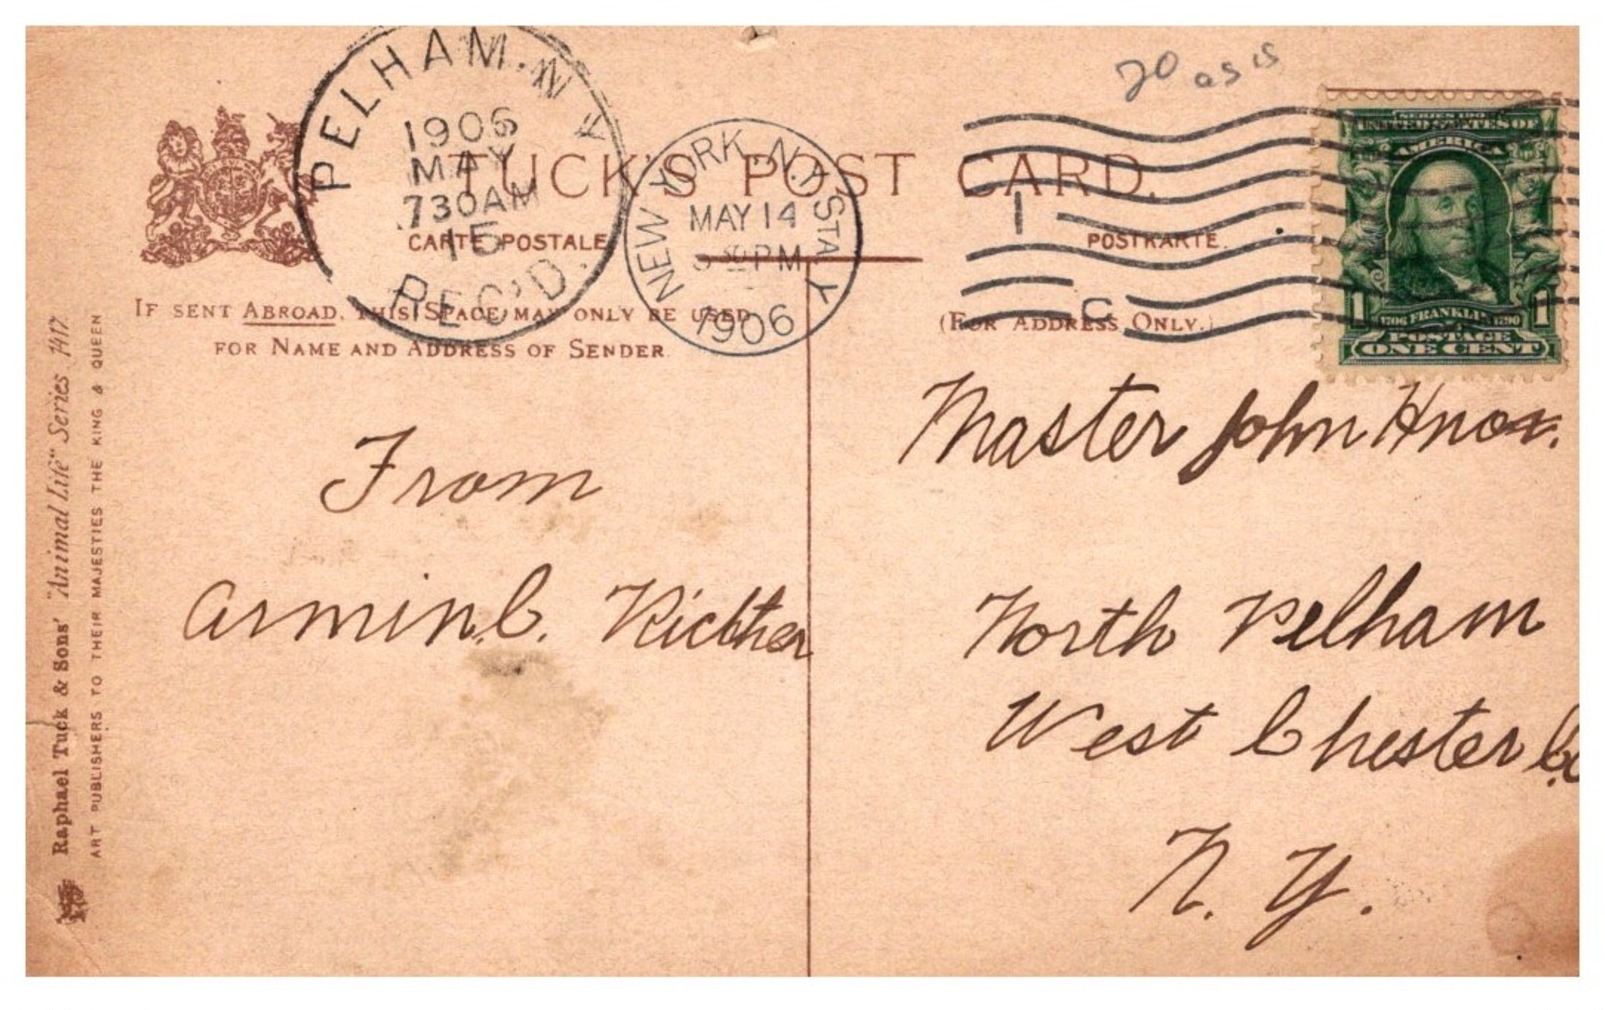 20 as is
PELHAM. N Y
1906
MAY
730AM
15
REC'D.
NEW YORK, N.Y. STA Y
MAY 14
30 PM
1906
1
C
SERIES 1902
UNITED STATES OF
AMERICA
1706 FRANKLIN 1790
1 1
POSTAGE
ONE CENT
TUCK'S POST CARD.
CARTE POSTALE
POSTKARTE.
IF SENT ABROAD, THIS SPACE MAY ONLY BE USED
FOR NAME AND ADDRESS OF SENDER.
(FOR ADDRESS ONLY.)
From
Armin C. Richter
Master John Knox.
North Pelham
West Chester Co
N. Y.
Raphael Tuck & Sons' "Animal Life" Series 1417.
ART PUBLISHERS TO THEIR MAJESTIES THE KING & QUEEN